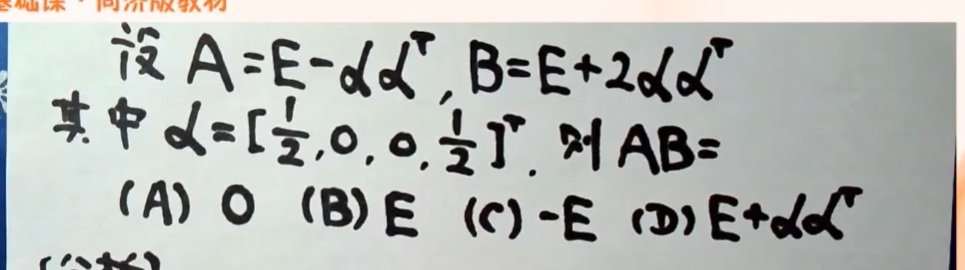 基础课·同济版教材
设 A=E-αα^T, B=E+2αα^T
其中 α=[1/2, 0, 0, 1/2]^T. 则 AB=
(A) O (B) E (C) -E (D) E+αα^T